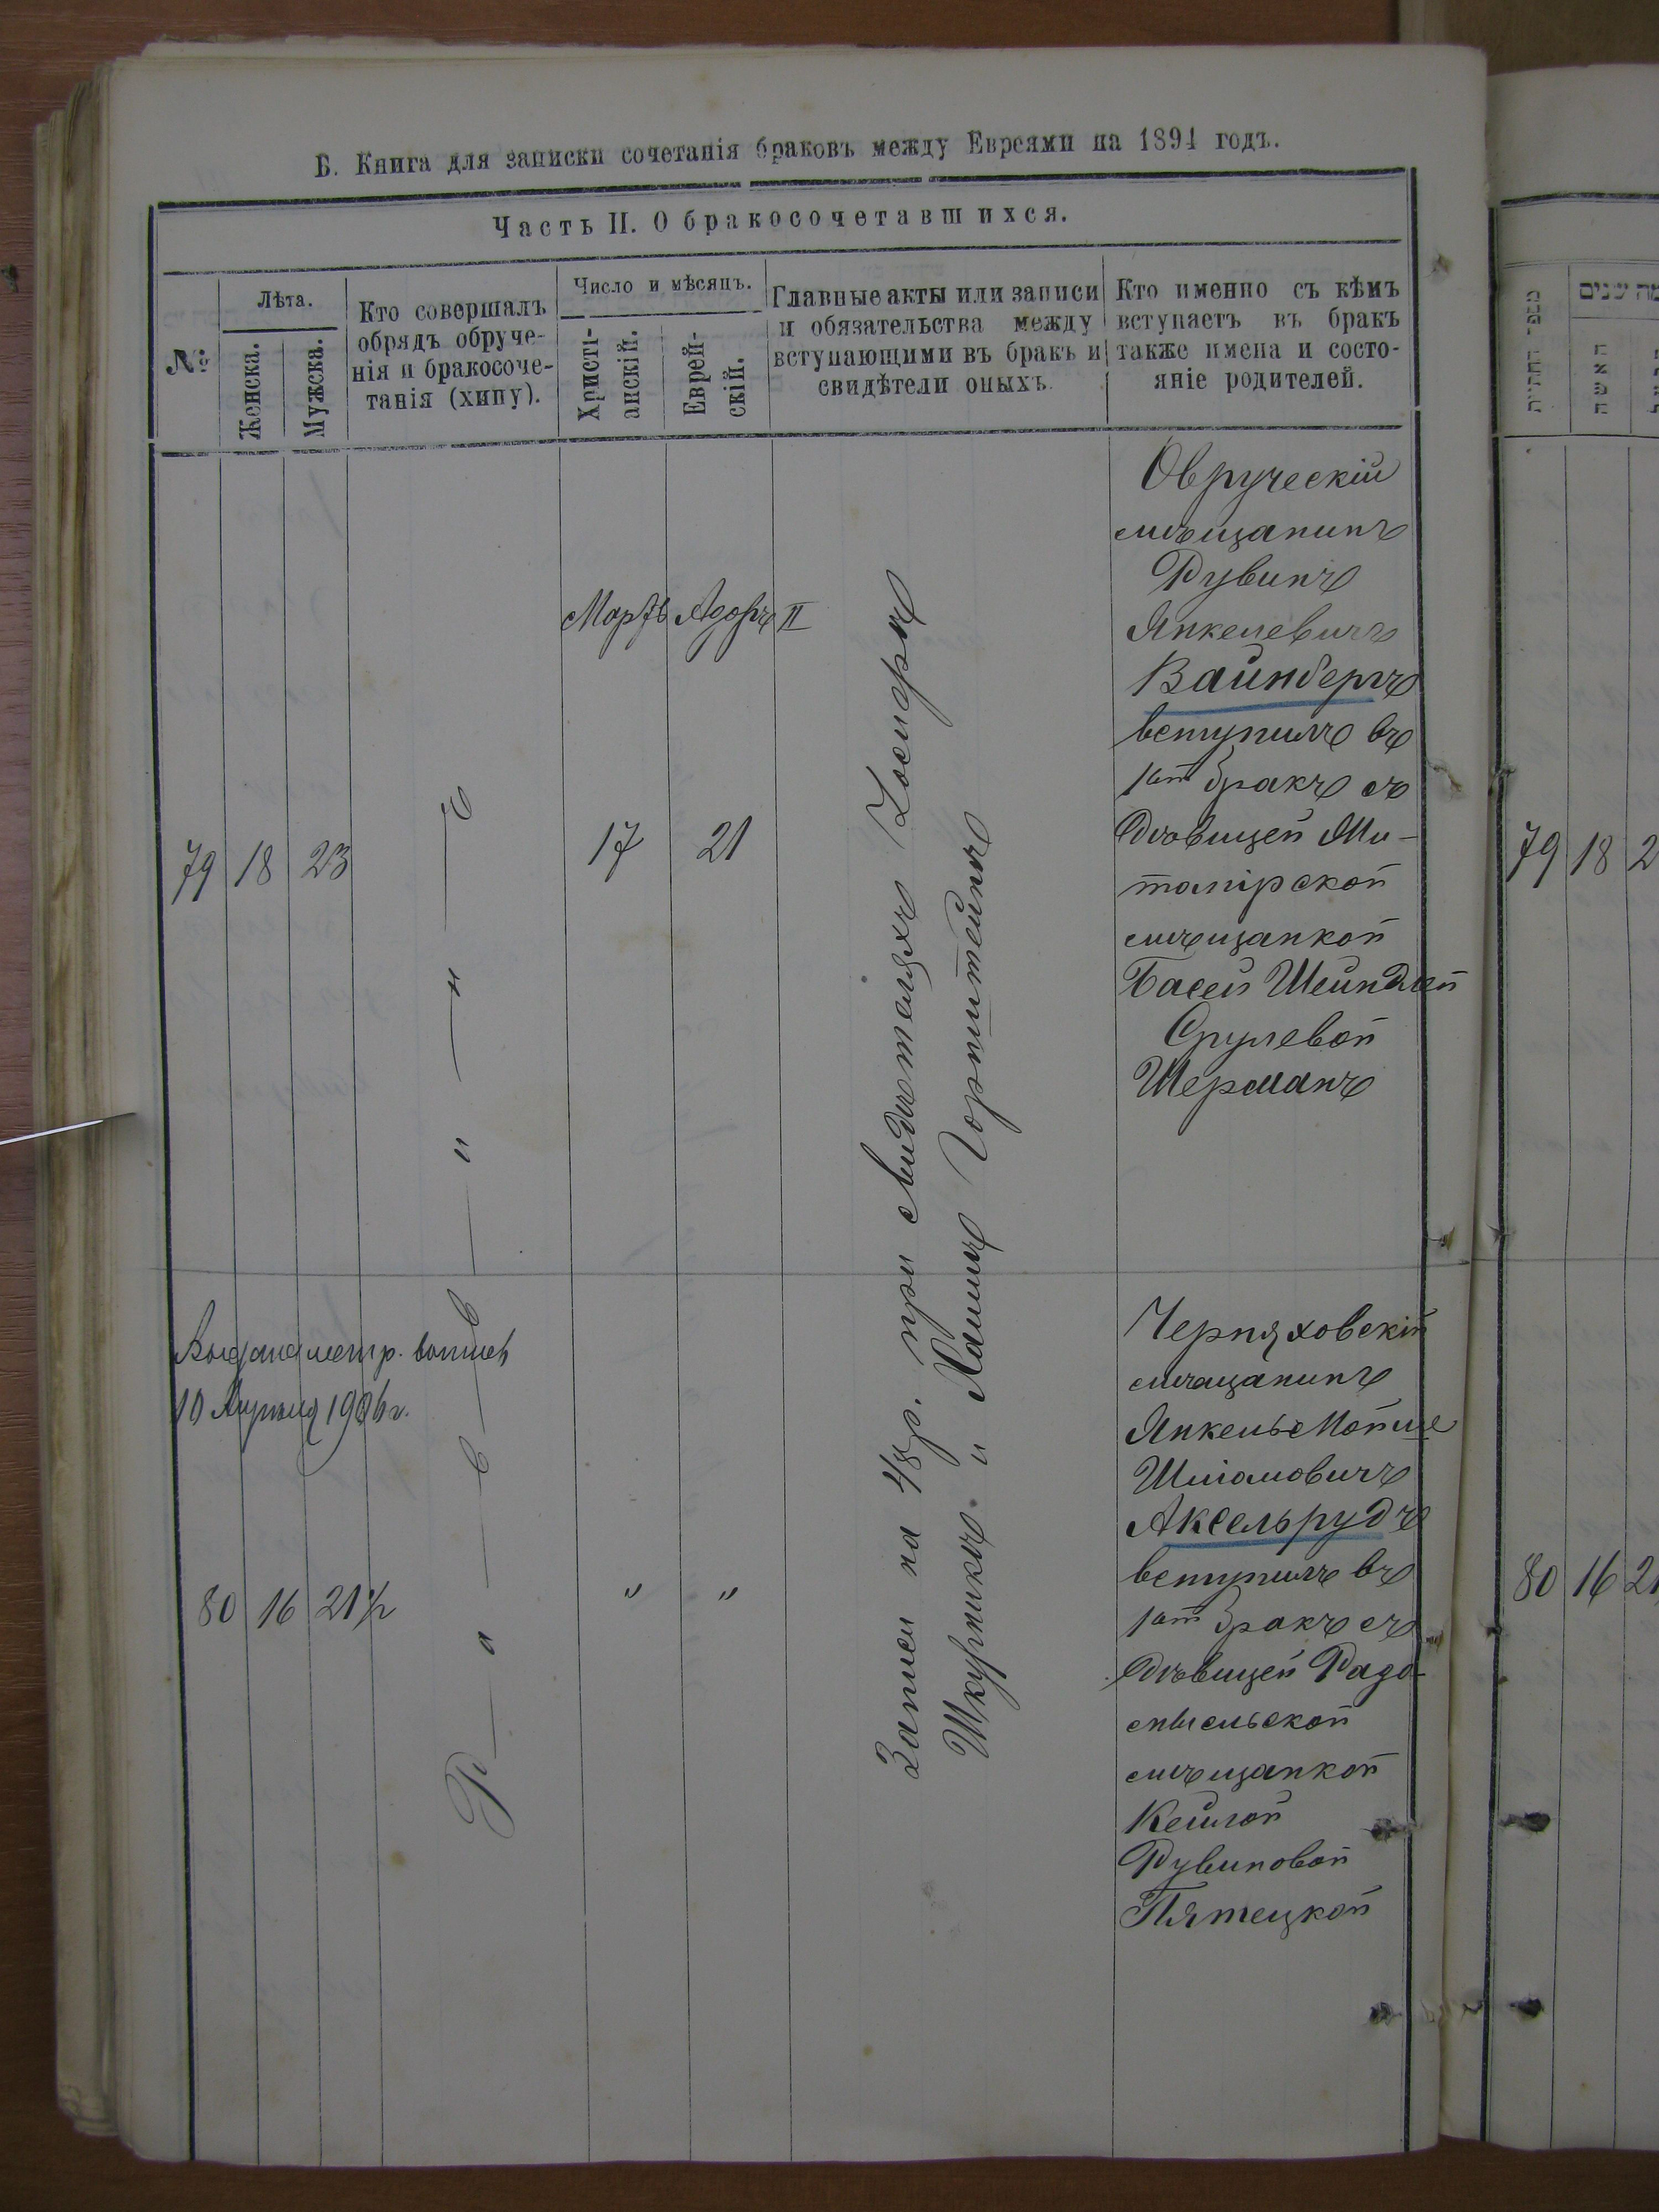 Б. Книга для записки сочетанія браковъ между Евреями на 1894 годъ.
Часть II. О бракосочетавшихся.
№
Лѣта.
Женска.
Мужска.
Кто совершалъ
обрядъ обруче-
нія и бракосоче-
танія (хипу).
Число и мѣсяцъ.
Христі-
анскій.
Еврей-
скій.
Главные акты или записи
и обязательства между
вступающими въ бракъ и
свидѣтели оныхъ.
Кто именно съ кѣмъ
вступаетъ въ бракъ
также имена и состо-
яніе родителей.
Мартъ Адаръ II
79 18 23
17 21
Овручскій
мѣщанинъ
Рувинъ
Янкелевичъ
Вайнберъ
вступилъ въ
1ый бракъ съ
дѣвицей Жи-
томірской
мѣщанкой
Басей Шейндлей
Срулевой
Шерманъ
Записи на 48 р. при свидѣтеляхъ
Шкурникъ и Горнштейнъ
Раввинъ
10 Апрѣля 1906 г.
80 16 21½
" "
Черняховскій
мѣщанинъ
Янкель Мойше
Аксельрудъ
вступилъ въ
1ый бракъ съ
дѣвицей Радо-
мысльской
мѣщанкой
Кейлой
Рувиновой
Пятецкой
מספר החתית
האשה
79 18 2
80 16 21